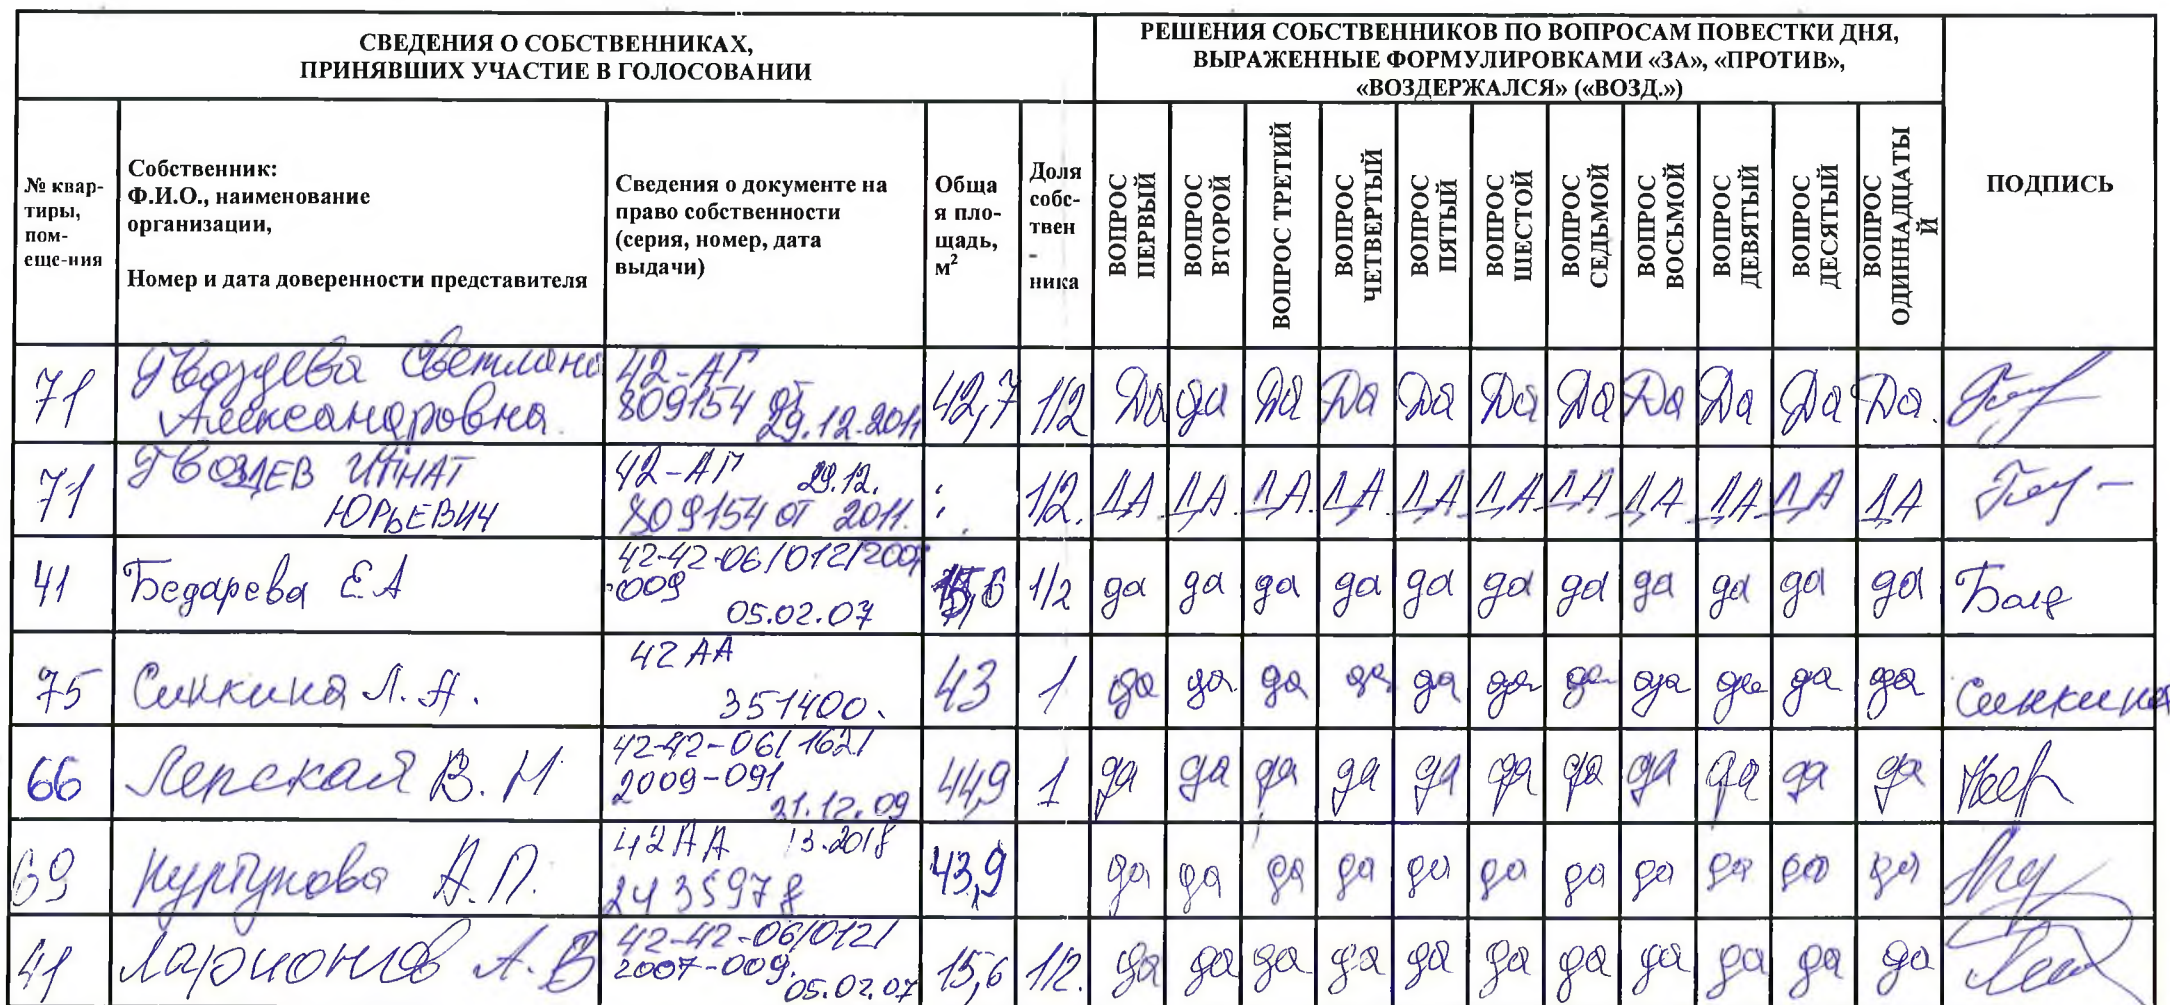 СВЕДЕНИЯ О СОБСТВЕННИКАХ,
ПРИНЯВШИХ УЧАСТИЕ В ГОЛОСОВАНИИ
РЕШЕНИЯ СОБСТВЕННИКОВ ПО ВОПРОСАМ ПОВЕСТКИ ДНЯ,
ВЫРАЖЕННЫЕ ФОРМУЛИРОВКАМИ «ЗА», «ПРОТИВ»,
«ВОЗДЕРЖАЛСЯ» («ВОЗД.»)
ПОДПИСЬ
№ квар-
тиры,
пом-
еще-ния
Собственник:
Ф.И.О., наименование
организации,
Номер и дата доверенности представителя
Сведения о документе на
право собственности
(серия, номер, дата
выдачи)
Обща
я пло-
щадь,
м²
Доля
собс-
твен
-
ника
ВОПРОС
ПЕРВЫЙ
ВОПРОС
ВТОРОЙ
ВОПРОС ТРЕТИЙ
ВОПРОС
ЧЕТВЕРТЫЙ
ВОПРОС
ПЯТЫЙ
ВОПРОС
ШЕСТОЙ
ВОПРОС
СЕДЬМОЙ
ВОПРОС
ВОСЬМОЙ
ВОПРОС
ДЕВЯТЫЙ
ВОПРОС
ДЕСЯТЫЙ
ВОПРОС
ОДИННАДЦАТЫ
Й
71
Гвоздева Светлана
Александровна
42-АГ
809154 от
29.12.2011
42,7
1/2
Да да Да Да Да Да Да Да Да Да Да.
71
ГВОЗДЕВ ИГНАТ
ЮРЬЕВИЧ
42-АГ 29.12.
809154 ОТ 2011.
1/2.
ДА ДА. ДА. ДА. ДА ДА ДА ДА ДА ДА ДА
41
Бедарева Е.А
42-42-06/012/2007
-009
05.02.07
15,6
1/2
да да да да да да да да да да да
75
Синкина Л.А.
42 АА
351400.
43
1
да да да да да да да да да да да
Синкина
66
Лепская В.Н
42-42-06/162/
2009-091
21.12.09
44,9
1
да да да да да да да да да да да
69
А.П.
42АА 13.2018
2435978
43,9
да да да да да да да да да да да
41
Ларионов А.В
42-42-06/012/
2007-009.
05.02.07
15,6
1/2.
да да да да да да да да да да да